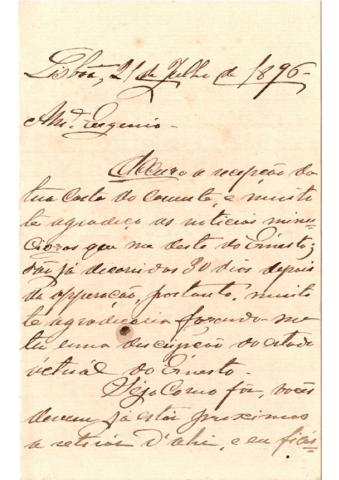 Lisboa, 21 de Julho de 1896-
Am.º Eugenio-
Accuso a recepção da
tua carta do corrente, e muito
te agradeço as noticias minu-
ciozas que me deste do Ernesto;
são já decorridos 30 dias depois
da opperação, portanto, muito
te agradeceria fazendo-me
tu uma descripção do estado
actual do Ernesto.
Seja como fôr, vocês
devem já estar proximos
a retirar d'ahi, e eu ficá-